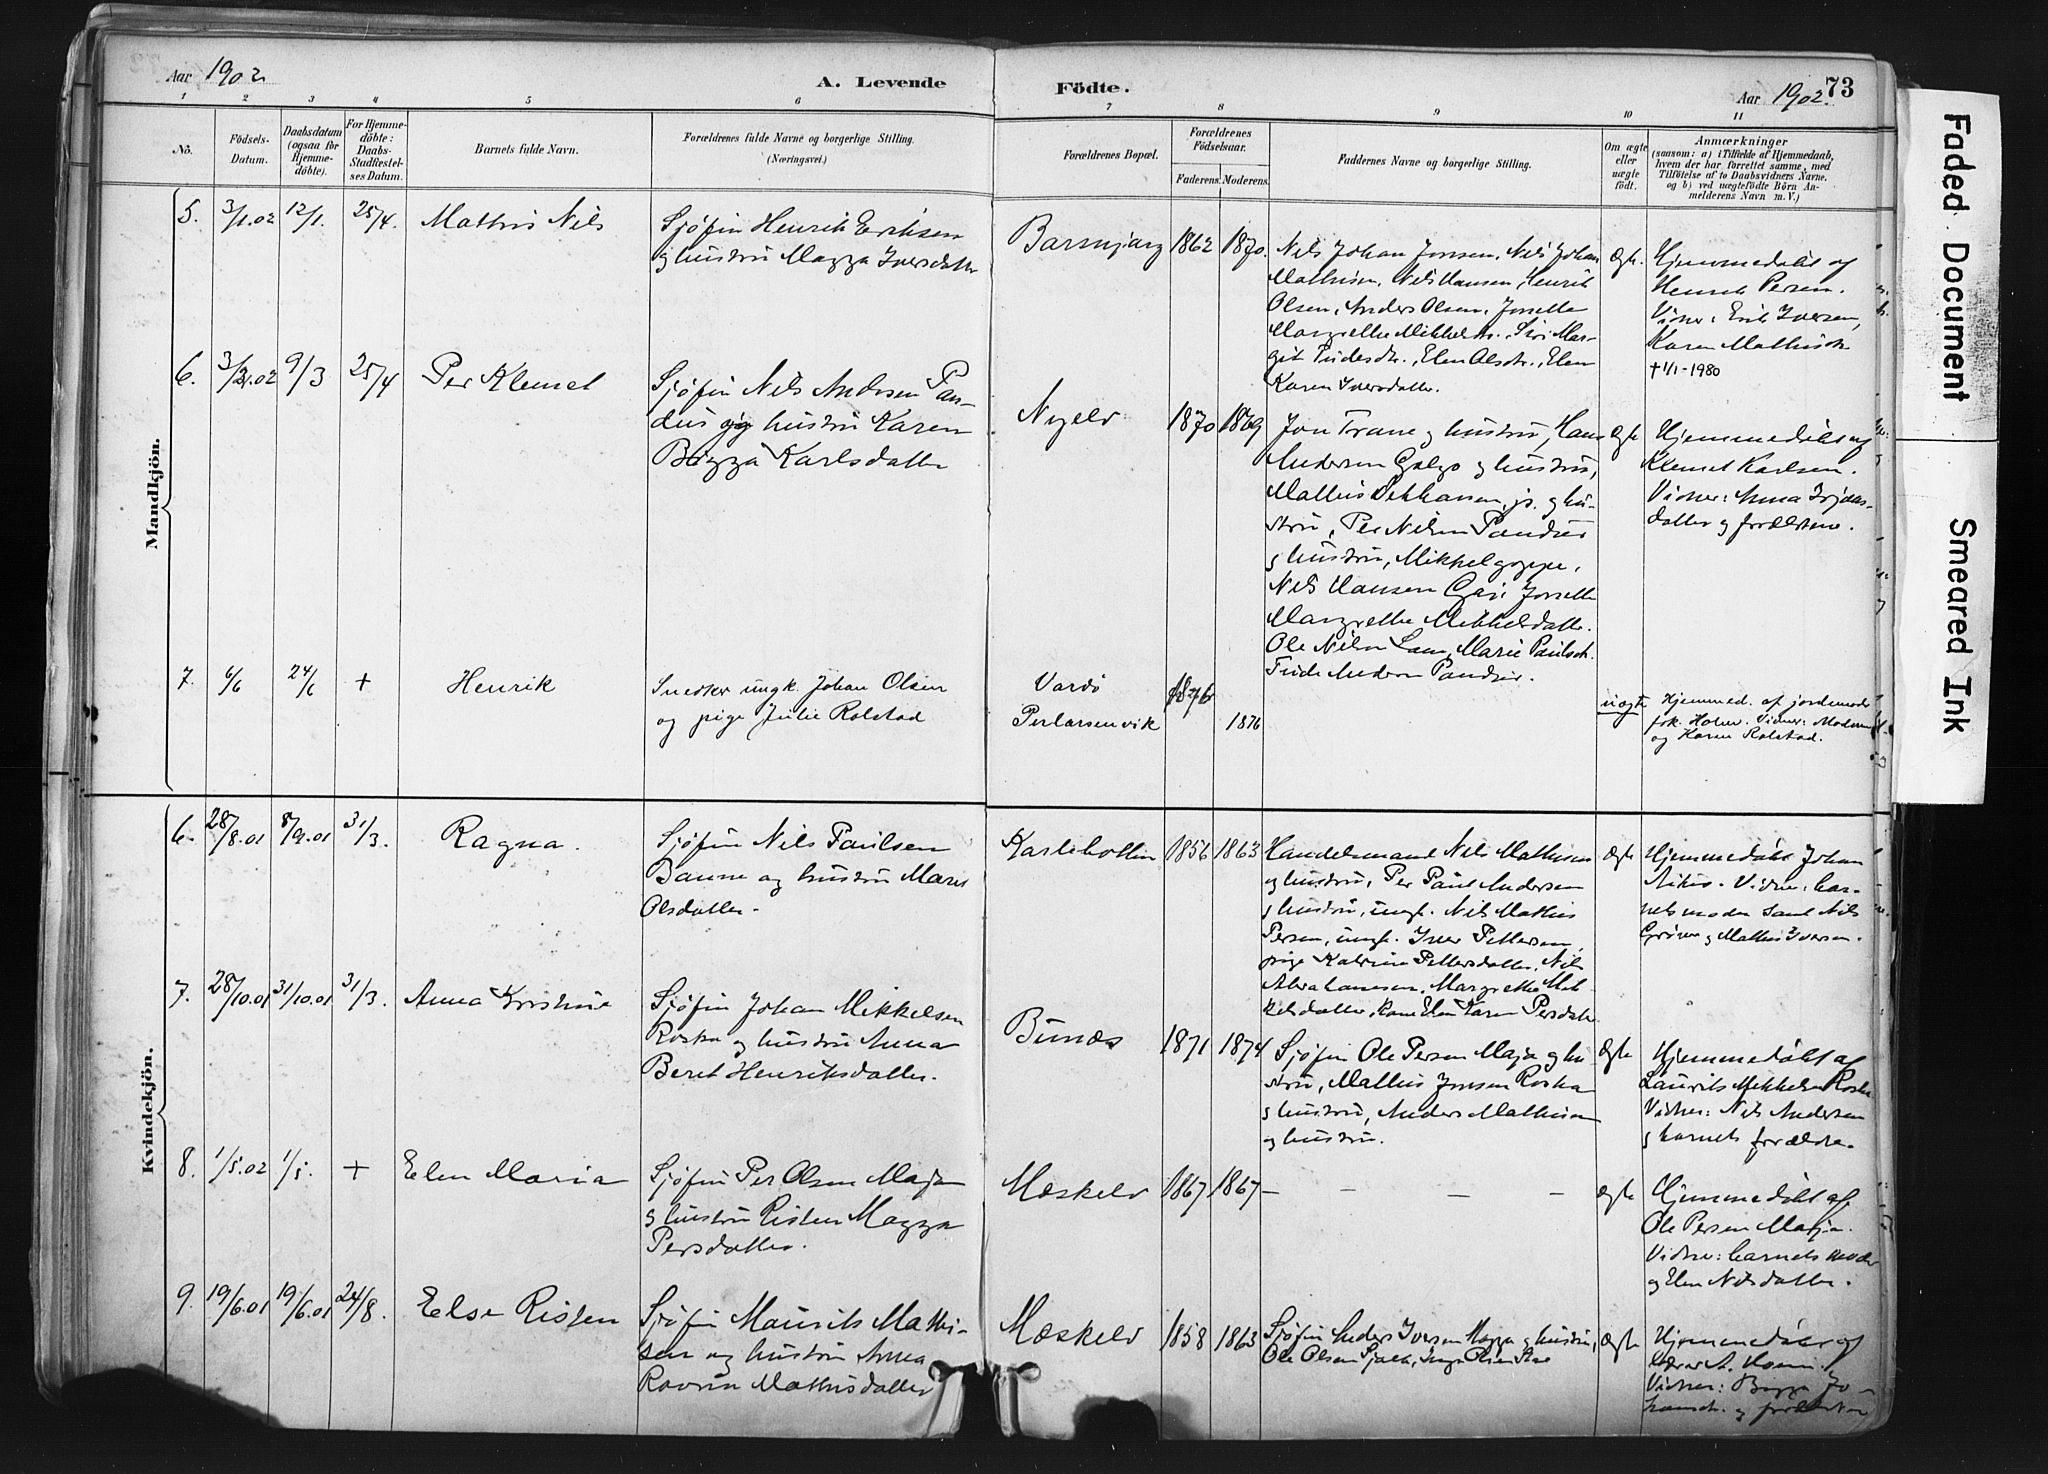 Aar 1902
A. Levende
Födte.
Aar 1902.
73
1 2 3 4 5 6 7 8 9 10 11
No.
Födsels-
Datum.
Daabsdatum
(ogsaa för
Hjemme-
döbte).
For Hjemme-
döbte:
Daabs-
Stadfæstel-
ses Datum.
Barnets fulde Navn.
Forældrenes fulde Navne og borgerlige Stilling.
(Næringsvei.)
Forældrenes Bopæl.
Forældrenes
Födselsaar.
Faderens. Moderens.
Faddernes Navne og borgerlige Stilling.
Om ægte
eller
uægte
födt.
Anmærkninger
(saasom: a) i Tilfælde af Hjemmedaab,
hvem der har forrettet samme, med
Tilföielse af to Daabsvidners Navne,
og b) ved uægtefödte Börn An-
melderens Navn m. V.)
Mandkjön.
5. 3/1.02 12/1. 25/4. Mathis Nils
Sjöfin Henrik Eriksen
og hustru Magga Iversdatter
Barsnjarg 1862 1870.
Nils Johan Jonsen, Nils Johan
Mathisen, Nils Hansen, Henrik
Olsen, Anders Olsen, Josette
Margrethe Mikkelsdtr. Siri Mar-
git Pedersdtr., Elen Olsdtr., Elen
Karen Iversdatter.
ægte.
Hjemmedöbt af
Henrik Persen.
Vidner: Erik Iversen,
Karen Mathisdtr
+ 1/1-1980
6. 9/3 25/4 Per Klemet
Sjöfin Nils Andersen Pan-
dus og hustru Karen
Bigga Karlsdatter
Nyelv 1870 1869
Jon Trane og hustru, Hans
Andersen Galgo og hustru,
Mathis Pekkasen jr. og hu-
stru, Per Nilsen Pandus
og hustru, Mikkel
Nils Hansen Josette
Margrethe Mikkelsdatter.
Ole Nilsen Marie Paulsdtr.
Andersen Pandus.
ægte
Hjemmedöbt af
Klemet Karlsen.
Vidner: Anna
datter og forældrene.
7. 6/6 24/6 + Henrik
Snedker ungk. Johan Olsen
og pige Julie Rolstad
Vardö
Perlarsenvik
1876
1876
uægte
Hjemmed. af jordemoder
frk. Holm. Vidner: Moderen
og Karen Rolstad.
Kvindekjön.
6. 28/8.01 8/9.01 31/3. Ragna.
Sjöfin Nils Paulsen
Banne og hustru Marie
Olsdatter.
Karlebotten 1856 1863
Handelsmand Nils Mathisen
og hustru, Per Paul Andersen
og hustru, ungk. Nils Mathis
Persen, ungk. Iver Pettersen,
pige Katrine Pettersdatter, Nils
Abrahamsen, Margrethe Mik-
kelsdatter, kone Elen Karen Persdatter
ægte
Hjemmedöbt Johan
Aikio. Vidner: bar-
nets moder samt Nils
Gröner og Mathis Iversen.
7. 28/10.01 31/10.01 31/3. Anna Kristine
Sjöfin Johan Mikkelsen
Roska og hustru Anna
Beret Henriksdatter.
Bunæs 1871 1874
Sjöfin Ole Persen Maja og hu-
stru, Mathis Jonsen Roska
og hustru, Anders Mathisen
og hustru.
ægte
Hjemmedöbt af
Laurits Mikkelsen Roska
Vidner: Nils Andersen
og barnets forældre.
8. 1/5.02 1/5. + Elen Maria
Sjöfin Per Olsen Maja
og hustru Risten Magga
Persdatter.
Mæskelv 1867 1867 — — — —
ægte
Hjemmedöbt af
Ole Persen Maja.
Vidner: barnets moder
og Elen Nilsdatter.
9. 19/6.01 19/6.01 24/8. Else Risten
Sjöfin Maurits Mathi-
sen og hustru Anna
Ravna Mathisdatter
Mæskelv 1858 1863
Sjöfin Anders Iversen Magga og hustru,
Ole Olsen
ægte
Hjemmedöbt af
lærer A.
Vidner: Bigga Jo-
hansdtr. og forældrene
Faded Document
Smeared Ink